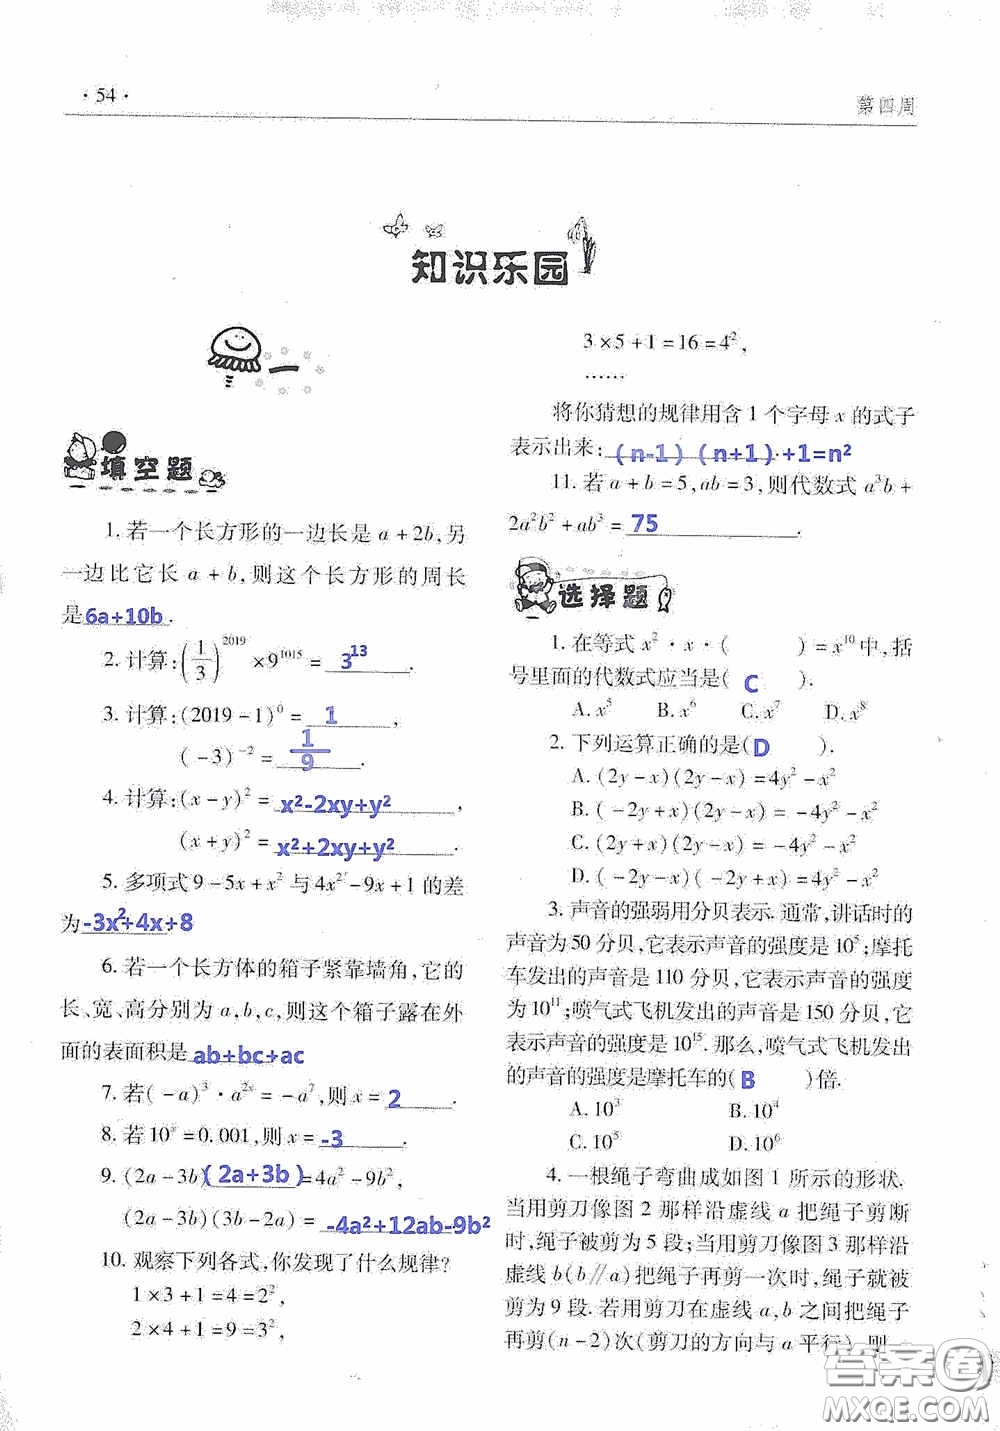 · 54 ·
第四周
知识乐园
一
填空题
1. 若一个长方形的一边长是 a + 2b, 另
一边比它长 a + b, 则这个长方形的周长
是 6a+10b .
2. 计算: (1/3)^2019 × 9^1015 = 3^13 .
3. 计算: (2019 - 1)^0 = 1 ,
(-3)^-2 = 1/9 .
4. 计算: (x - y)² = x²-2xy+y² ,
(x + y)² = x²+2xy+y² .
5. 多项式 9 - 5x + x² 与 4x² - 9x + 1 的差
为 -3x²+4x+8 .
6. 若一个长方体的箱子紧靠墙角, 它的
长、宽、高分别为 a, b, c, 则这个箱子露在外
面的表面积是 ab+bc+ac
7. 若(-a)³ · a^2x = -a⁷, 则 x = 2 .
8. 若 10^x = 0.001, 则 x = -3 .
9. (2a - 3b)(2a+3b) = 4a² - 9b²,
(2a - 3b)(3b - 2a) = -4a²+12ab-9b²
10. 观察下列各式, 你发现了什么规律?
1 × 3 + 1 = 4 = 2²,
2 × 4 + 1 = 9 = 3²,
3 × 5 + 1 = 16 = 4²,
……
将你猜想的规律用含 1 个字母 x 的式子
表示出来: (n-1)(n+1)+1=n²
11. 若 a + b = 5, ab = 3, 则代数式 a³b +
2a²b² + ab³ = 75 .
选择题
1. 在等式 x² · x · (  ) = x¹⁰ 中, 括
号里面的代数式应当是( C ).
A. x⁵ B. x⁶ C. x⁷ D. x⁸
2. 下列运算正确的是( D ).
A. (2y - x)(2y - x) = 4y² - x²
B. (-2y + x)(2y - x) = -4y² - x²
C. (2y + x)(2y - x) = -4y² - x²
D. (-2y - x)(-2y + x) = 4y² - x²
3. 声音的强弱用分贝表示. 通常, 讲话时的
声音为 50 分贝, 它表示声音的强度是 10⁵; 摩托
车发出的声音是 110 分贝, 它表示声音的强度
为 10¹¹; 喷气式飞机发出的声音是 150 分贝, 它
表示声音的强度是 10¹⁵. 那么, 喷气式飞机发出
的声音的强度是摩托车的( B )倍.
A. 10³ B. 10⁴
C. 10⁵ D. 10⁶
4. 一根绳子弯曲成如图 1 所示的形状.
当用剪刀像图 2 那样沿虚线 a 把绳子剪断
时, 绳子被剪为 5 段; 当用剪刀像图 3 那样沿
虚线 b(b∥a)把绳子再剪一次时, 绳子就被
剪为 9 段. 若用剪刀在虚线 a, b 之间把绳子
再剪(n - 2)次(剪刀的方向与 a 平行), 则
答案圈
MXQE.COM